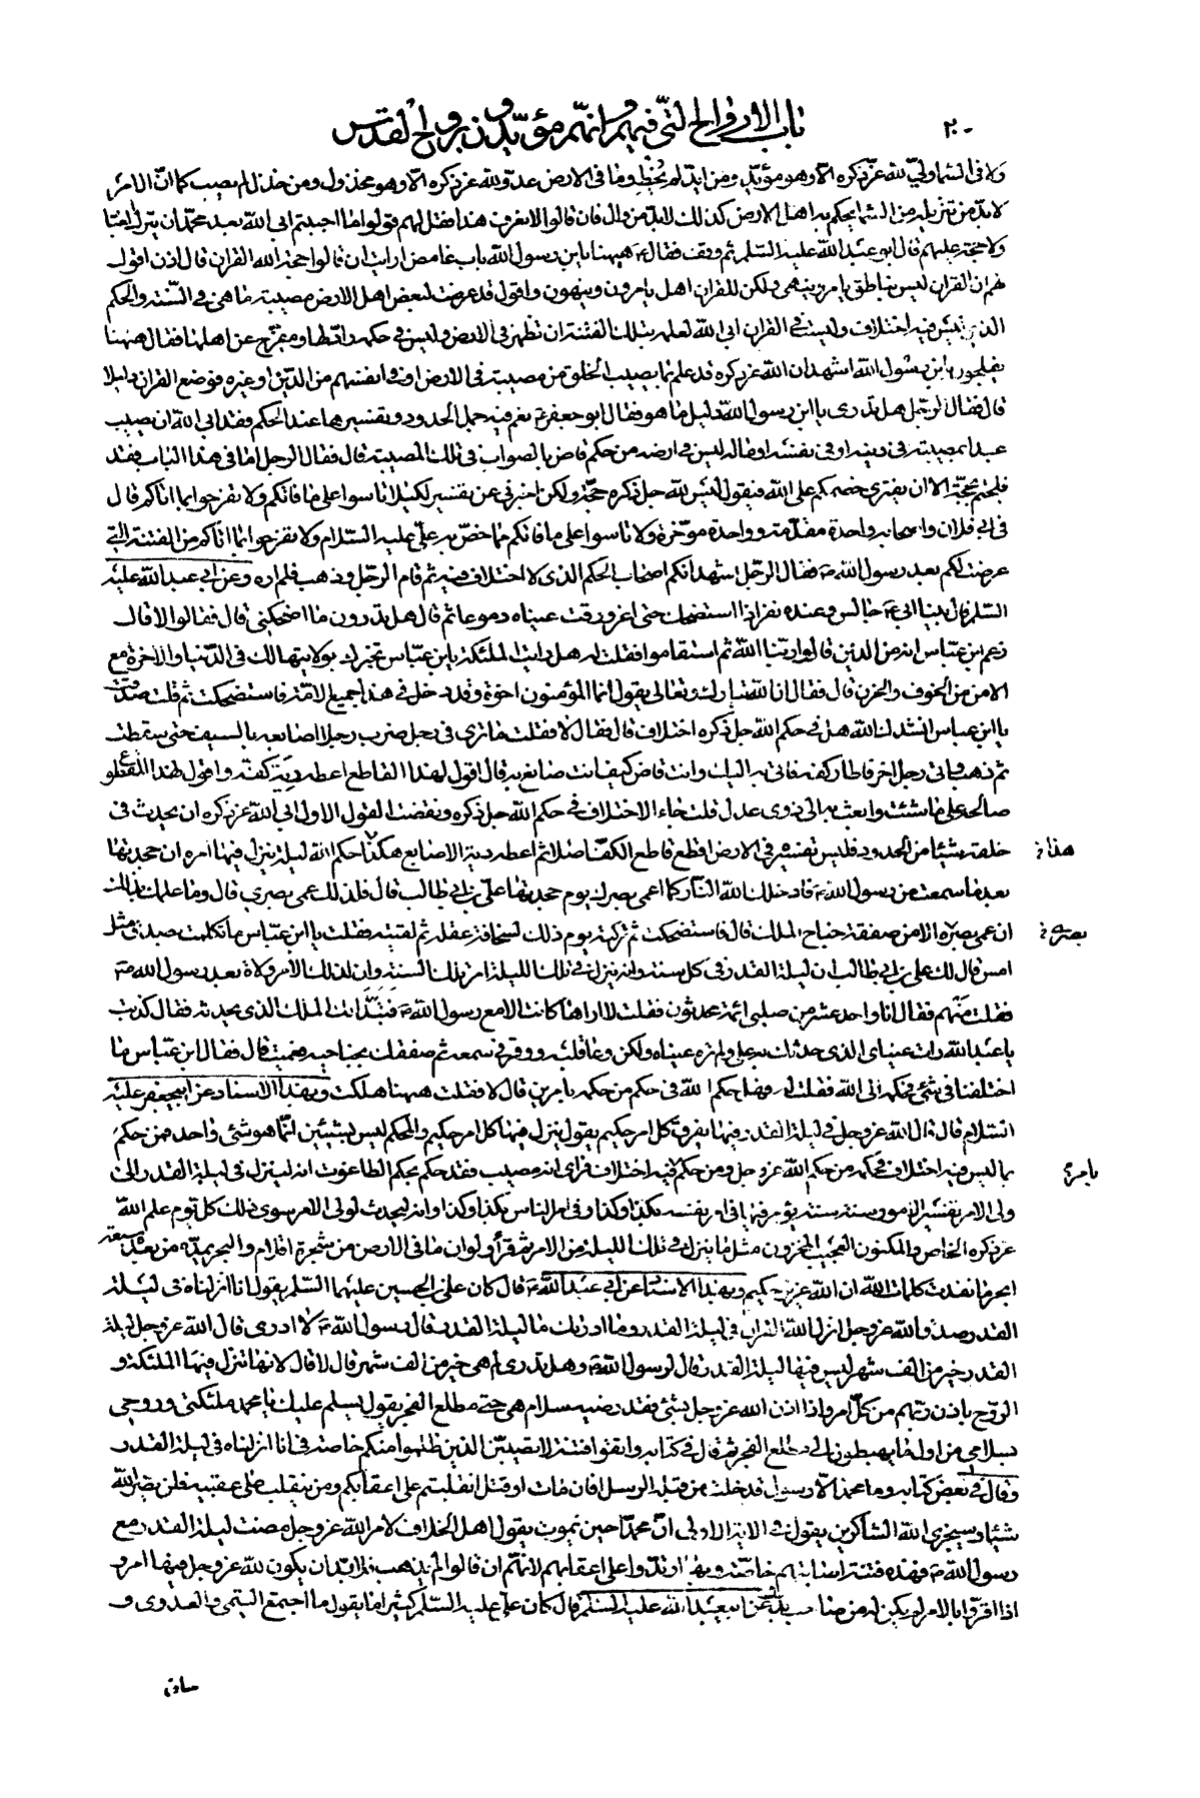 ٢٠
باب الارواح التي فيهم وانهم مؤيدون بروح القدس
ولا في السماء ولي لله عز ذكره الا وهو مؤيد ومن ايد لم يخط وما في الارض عدو لله عز ذكره الا وهو مخذول ومن خذل لم يصب كما ان الامر
لابد من تنزيله من السماء يحكم به اهل الارض كذلك لابد من وال فان قالوا لا نعرف هذا فقل لهم قولوا ما احببتم ابى الله بعد محمد ان يترك العباد
ولا حجة عليهم قال ابو عبد الله عليه السلم ثم وقف فقال ههنا يا بن رسول الله باب غامض ارايت ان قالوا حجة الله القران قال اذن اقول
لهم ان القران ليس بناطق يامر وينهى ولكن للقران اهل يامرون وينهون واقول قد عرضت لبعض اهل الارض مصيبة ما هي في السنة والحكم
الذي ليس فيه اختلاف وليست في القران ابى الله لعلمه بتلك الفتنة ان تظهر في الارض وليس في حكمه راد لها ومفرج عن اهلها فقال ههنا
يفلجون يا بن رسول الله اشهد ان الله عز ذكره قد علم بما يصيب الخلق من مصيبة في الارض او في انفسهم من الدين او غيره فوضع القران دليلا
قال فقال الرجل هل تدري يا ابن رسول الله دليل ما هو فقال ابو جعفر نعم فيه جمل الحدود وتفسيرها عند الحكم فقد ابى الله ان يصيب
عبدا بمصيبة في دينه او في نفسه او ماله ليس في ارضه من حكم قاض بالصواب في تلك المصيبة قال فقال الرجل اما في هذا الباب فقد
فلجتم بحجة الا ان يفتري خصمكم على الله فيقول ليس لله جل ذكره حجة ولكن اخبرني عن تفسير لكيلا تاسوا على ما فاتكم ولا تفرحوا بما اتاكم قال
في ابي فلان واصحابه واحدة مقدمة وواحدة مؤخرة ولا تاسوا على ما فاتكم مما خص به علي عليه السلام ولا تفرحوا بما اتاكم من الفتنة التي
عرضت لكم بعد رسول الله ص فقال الرجل اشهد انكم اصحاب الحكم الذي لا اختلاف فيه ثم قام الرجل وذهب فلم اره وعن ابي عبد الله عليه
السلم قال بينا ابي ع جالس وعنده نفر اذا استضحك حتى اغرورقت عيناه دموعا ثم قال هل تدرون ما اضحكني قال فقالوا لا قال
زعم ابن عباس انه من الذين قالوا ربنا الله ثم استقاموا فقلت له هل رايت الملئكة يا بن عباس تخبرك بولايتها لك في الدنيا والاخرة مع
الامن من الخوف والحزن قال فقال ان الله تبارك وتعالى يقول انما المؤمنون اخوة وقد دخل في هذا جميع الامة فاستضحكت ثم قلت صدقت
يا ابن عباس انشدك الله هل في حكم الله جل ذكره اختلاف قال فقال لا فقلت ما ترى في رجل ضرب رجلا اصابعه بالسيف حتى سقطت
ثم ذهب واتى رجل اخر فاطار كفه فاتي به اليك وانت قاض كيف انت صانع به قال اقول لهذا القاطع اعطه دية كفه واقول لهذا المقطوع
صالحه على ما شئت وابعث به الى ذوي عدل قلت جاء الاختلاف في حكم الله جل ذكره ونقضت القول الاول ابى الله عز ذكره ان يحدث في
خلقه شيئا من الحدود فليس تفسيره في الارض اقطع قاطع الكف اصلا ثم اعطه دية الاصابع هكذا حكم الله ليلة ينزل فيها امره ان جحدتها
هذا
بعد ما سمعت من رسول الله ص فادخلك الله النار كما اعمى بصرك يوم جحدتها على بن ابي طالب قال فلذلك عمى بصري قال وما علمك بذلك
ان عمى بصره الا من صفقة جناح الملك قال فاستضحكت ثم تركته يوم ذلك لسخافة عقله ثم لقيته فقلت يا ابن عباس ما تكلمت بصدق مثل
بصري
امس قال لك علي بن ابي طالب ان ليلة القدر في كل سنة وانه ينزل في تلك الليلة امر تلك السنة وان لذلك الامر ولاة بعد رسول الله ص
فقلت منهم فقال انا واحد عشر من صلبي ائمة محدثون فقلت لا اراها كانت الا مع رسول الله ص فتبدا لك الملك الذي يحدثه فقال كذبت
يا عبد الله رات عيناي الذي حدثك به علي ولم تره عيناه ولكن وعا قلبه ووقر في سمعه ثم صفقك بجناحيه فعميت قال فقال ابن عباس ما
اختلفنا في شئ فحكمه الى الله فقلت له فهل حكم الله في حكم من حكمه بامرين قال لا فقلت ههنا هلكت وبهذا الاسناد عن ابي جعفر عليه
السلام قال قال الله عز وجل في ليلة القدر فيها يفرق كل امر حكيم يقول ينزل فيها كل امر حكيم والمحكم ليس بشيئين انما هو شئ واحد فمن حكم
بما ليس فيه اختلاف فحكمه من حكم الله عز وجل ومن حكم فيه اختلاف فراى انه مصيب فقد حكم بحكم الطاغوت انه لينزل في ليلة القدر الى
بامر
ولي الامر تفسير الامور سنة سنة يؤمر فيها في امر نفسه بكذا وكذا وفي امر الناس بكذا وكذا وانه ليحدث لولي الامر سوى ذلك كل يوم علم الله
عز ذكره الخاص والمكنون العجيب المخزون مثل ما ينزل في تلك الليلة من الامر ثم قرأ ولو ان ما في الارض من شجرة اقلام والبحر يمده من بعده سبعة
ابحر ما نفدت كلمات الله ان الله عزيز حكيم وبهذا الاسناد عن ابي عبد الله ع قال كان علي بن الحسين عليهما السلم يقول انا انزلناه في ليلة
القدر صدق الله عز وجل انزل الله القران في ليلة القدر وما ادراك ما ليلة القدر قال رسول الله ص لا ادري قال الله عز وجل ليلة
القدر خير من الف شهر ليس فيها ليلة القدر قال لرسول الله ص وهل تدري لم هي خير من الف شهر قال لا قال لانها تنزل فيها الملئكة و
الروح باذن ربهم من كل امر واذا اذن الله عز وجل بشئ فقد رضيه سلام هي حتى مطلع الفجر يقول يسلم عليك يا محمد ملئكتي وروحي
بسلامي من اول ما يهبطون الى مطلع الفجر ثم قال في كتابه واتقوا فتنة لا تصيبن الذين ظلموا منكم خاصة في انا انزلناه في ليلة القدر
وقال في بعض كتابه وما محمد الا رسول قد خلت من قبله الرسل افان مات او قتل انقلبتم على اعقابكم ومن ينقلب على عقبيه فلن يضر الله
شيئا وسيجزي الله الشاكرين يقول في الاية الاولى ان محمدا حين يموت يقول اهل الخلاف لامر الله عز وجل مضت ليلة القدر مع
رسول الله ص فهذه فتنة اصابتهم خاصة وبها ارتدوا على اعقابهم لانهم ان قالوا لم يذهب فلابد ان يكون لله عز وجل فيها امر و
اذا اقروا بالامر لم يكن له من صاحب بد وعن ابي عبد الله عليه السلم قال كان علي عليه السلم كثيرا ما يقول ما اجتمع التيمي والعدوي و